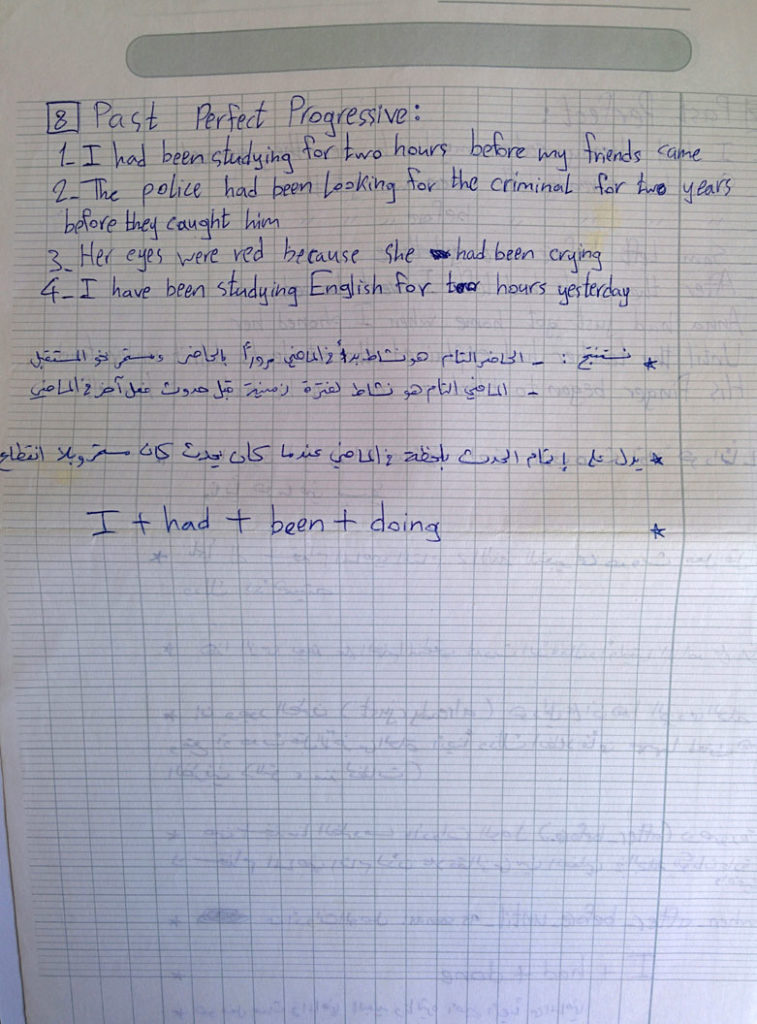 8 Past Perfect Progressive:
1_ I had been studying for two hours before my friends came
2_ The police had been Looking for the criminal for two years
before they caught him
3_ Her eyes were red because she had been crying
4_ I have been studying English for two hours yesterday
* نستنتج : _ الحاضر التام هو نشاط بدأ في الماضي مروراً بالحاضر ومستمر نحو المستقبل
_ الماضي التام هو نشاط لفترة زمنية قبل حدوث عمل آخر في الماضي
* يدل على إتمام الحدث بلحظة في الماضي عندما كان يحدث كان مستمر وبلا انقطاع
* I + had + been + doing